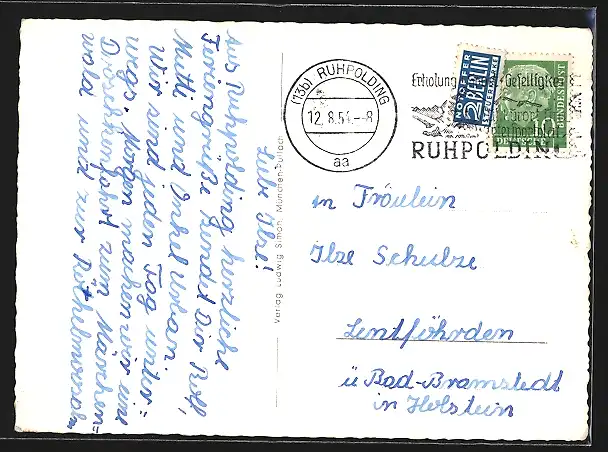 Liebe Ilse!
Aus Ruhpolding herzliche
Feriengrüße sendet Dir
Mutti und Onkel Urban.
Wir sind jeden Tag unter=
wegs. Morgen machen wir eine
Droschkenfahrt zum Märchen=
wald und zur
Verlag Ludwig Simon, München-Pullach
(13b) RUHPOLDING
12.8.54.-8
aa
Erholung Geselligkeit
RUHPOLDING
NOTOPFER
2 BERLIN
STEUERMARKE
DEUTSCHE BUNDESPOST
Fräulein
Ilse Schulze
Lentföhrden
ü Bad-Bramstedt
in Holstein